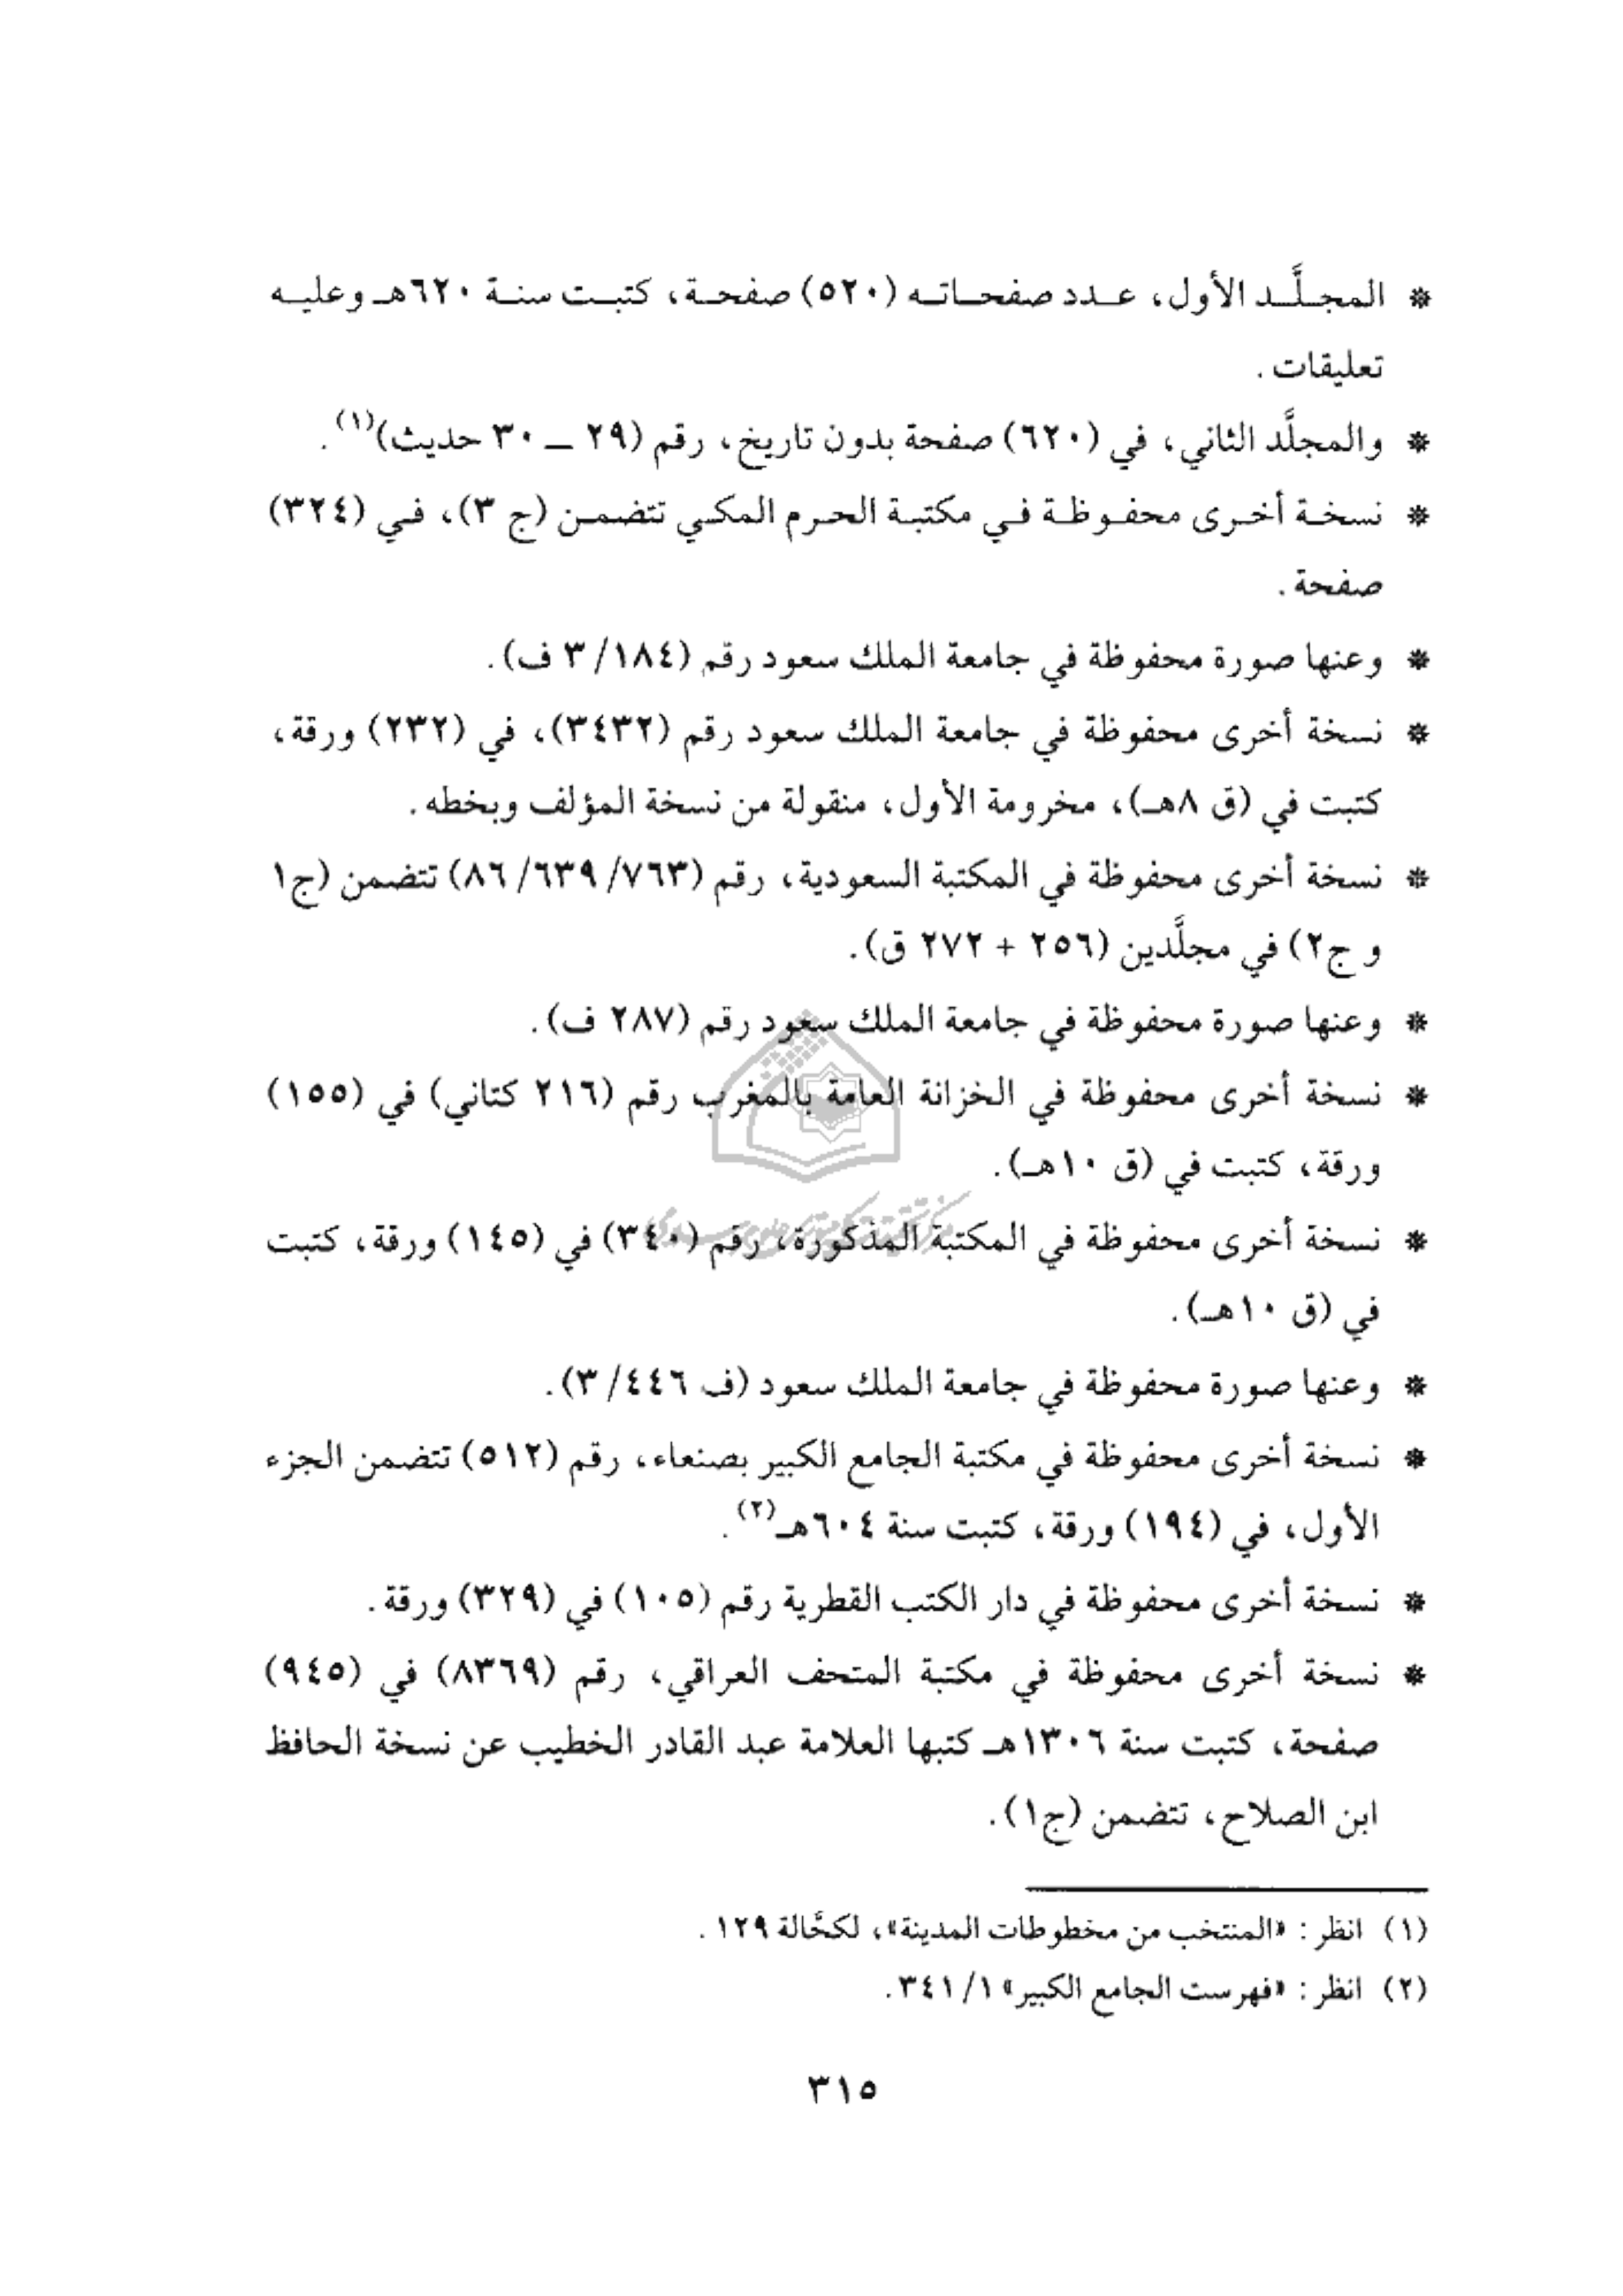 * المجلَّد الأول، عدد صفحاته (٥٢٠) صفحة، كتبت سنة ٦٢٠هـ وعليه
تعليقات.
* والمجلَّد الثاني، في (٦٢٠) صفحة بدون تاريخ، رقم (٢٩ ــ ٣٠ حديث)(١).
* نسخة أخرى محفوظة في مكتبة الحرم المكي تتضمن (ج ٣)، في (٣٢٤)
صفحة.
* وعنها صورة محفوظة في جامعة الملك سعود رقم (١٨٤/ ٣ ف).
* نسخة أخرى محفوظة في جامعة الملك سعود رقم (٣٤٣٢)، في (٢٣٢) ورقة،
كتبت في (ق ٨هـ)، مخرومة الأول، منقولة من نسخة المؤلف وبخطه.
* نسخة أخرى محفوظة في المكتبة السعودية، رقم (٧٦٣/ ٦٣٩/ ٨٦) تتضمن (ج١
و ج٢) في مجلَّدين (٢٥٦ + ٢٧٢ ق).
* وعنها صورة محفوظة في جامعة الملك سعود رقم (٢٨٧ ف).
* نسخة أخرى محفوظة في الخزانة العامة بالمغرب رقم (٢١٦ كتاني) في (١٥٥)
ورقة، كتبت في (ق ١٠هـ).
* نسخة أخرى محفوظة في المكتبة المذكورة، رقم (٣٤٠) في (١٤٥) ورقة، كتبت
في (ق ١٠هـ).
* وعنها صورة محفوظة في جامعة الملك سعود (ف ٤٤٦/ ٣).
* نسخة أخرى محفوظة في مكتبة الجامع الكبير بصنعاء، رقم (٥١٢) تتضمن الجزء
الأول، في (١٩٤) ورقة، كتبت سنة ٦٠٤هـ(٢).
* نسخة أخرى محفوظة في دار الكتب القطرية رقم (١٠٥) في (٣٢٩) ورقة.
* نسخة أخرى محفوظة في مكتبة المتحف العراقي، رقم (٨٣٦٩) في (٩٤٥)
صفحة، كتبت سنة ١٣٠٦هـ كتبها العلامة عبد القادر الخطيب عن نسخة الحافظ
ابن الصلاح، تتضمن (ج١).
(١) انظر: «المنتخب من مخطوطات المدينة»، لكحَّالة ١٢٩.
(٢) انظر: «فهرست الجامع الكبير» ١/ ٣٤١.
٣١٥